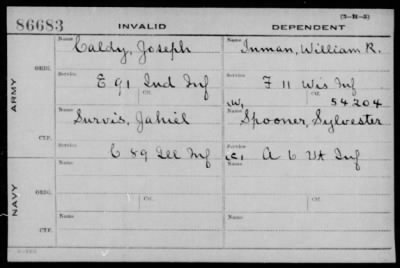 (3-B-5)
86683 INVALID DEPENDENT
Name Caldy, Joseph Name Inman, William R.
ORIG.
Service E 91 Ind Inf Service F 11 Wis Inf
ARMY
Ctf. Ctf. W, 54204
Name Survis, Jahiel Name Spooner, Sylvester
CTF.
Service C 89 Ill Inf Service C, A 6 Vt Inf
Name Name
ORIG.
NAVY
Service Ctf. Service Ctf.
Name Name
CTF.
Service Service